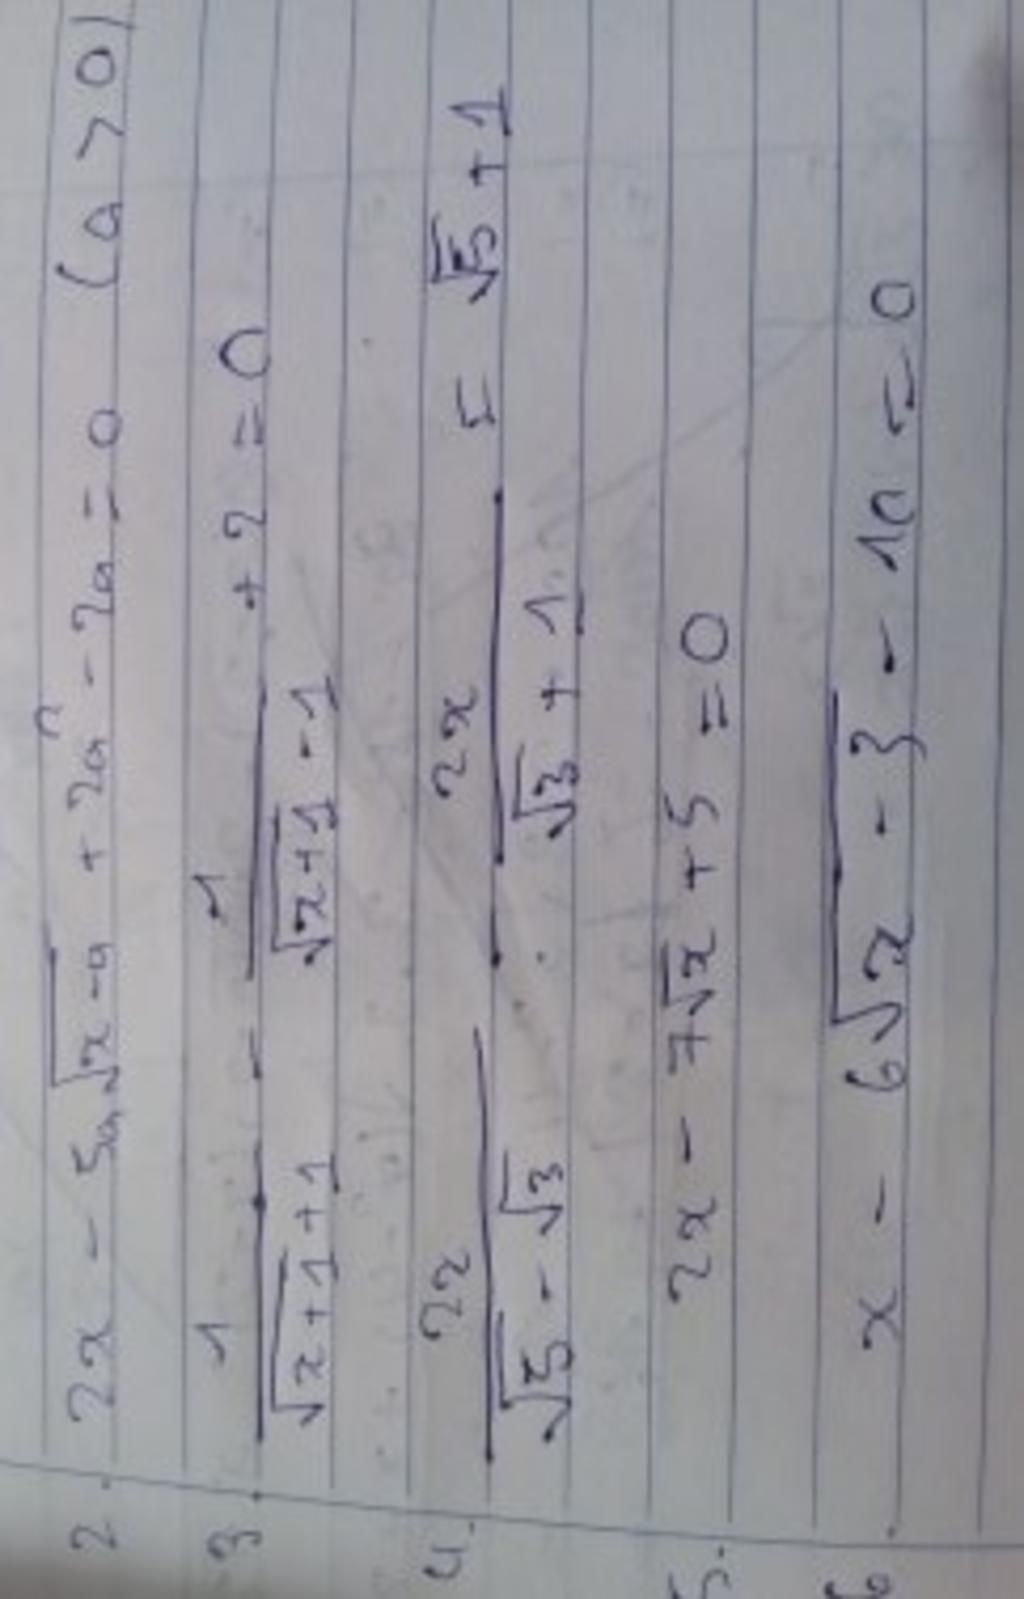 2. 2x - 5a√(x-a) + 2a² - 2a = 0 (a > 0)
3. 1/(√(x+1) + 1) - 1/(√(x+1) - 1) + 2 = 0
4. 2x/(√5 - √3) - 2x/(√3 + 1) = √5 + 1
5. 2x - 7√x + 5 = 0
6. x - 6√(x - 3) - 10 = 0